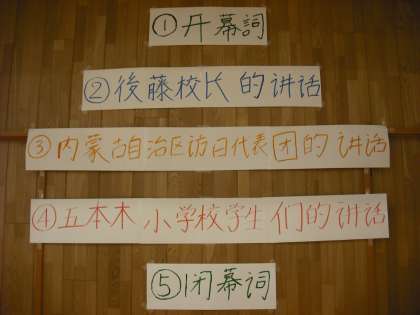 ①开幕詞
②後藤校长的讲话
③内蒙古自治区访日代表团的讲话
④五本木小学校学生们的讲话
⑤闭幕词